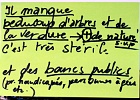 Il manque
beaucoup d'arbres et de
la verdure → + de nature
SVP
c'est très stérile
et des bancs publics
(pr handicapés, pers. âgées
etc..)